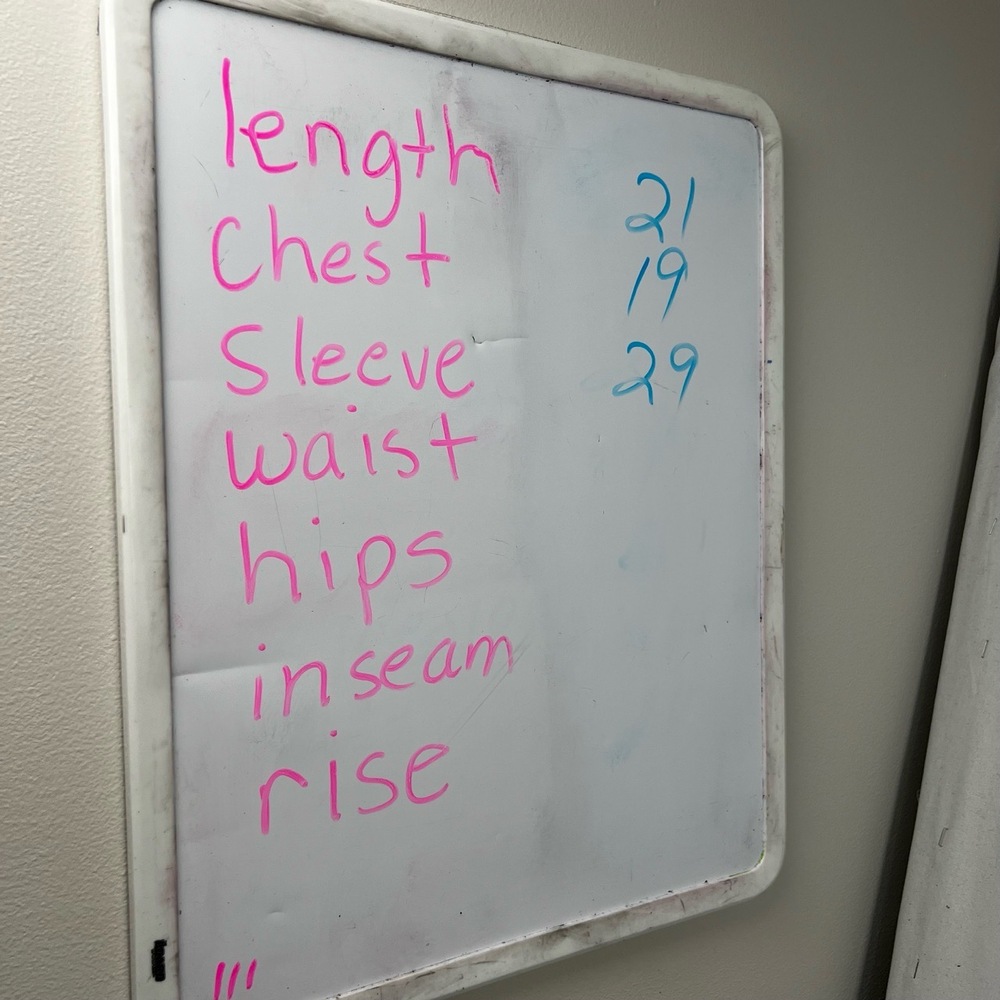 length 21
Chest 19
Sleeve 29
waist
hips
inseam
rise